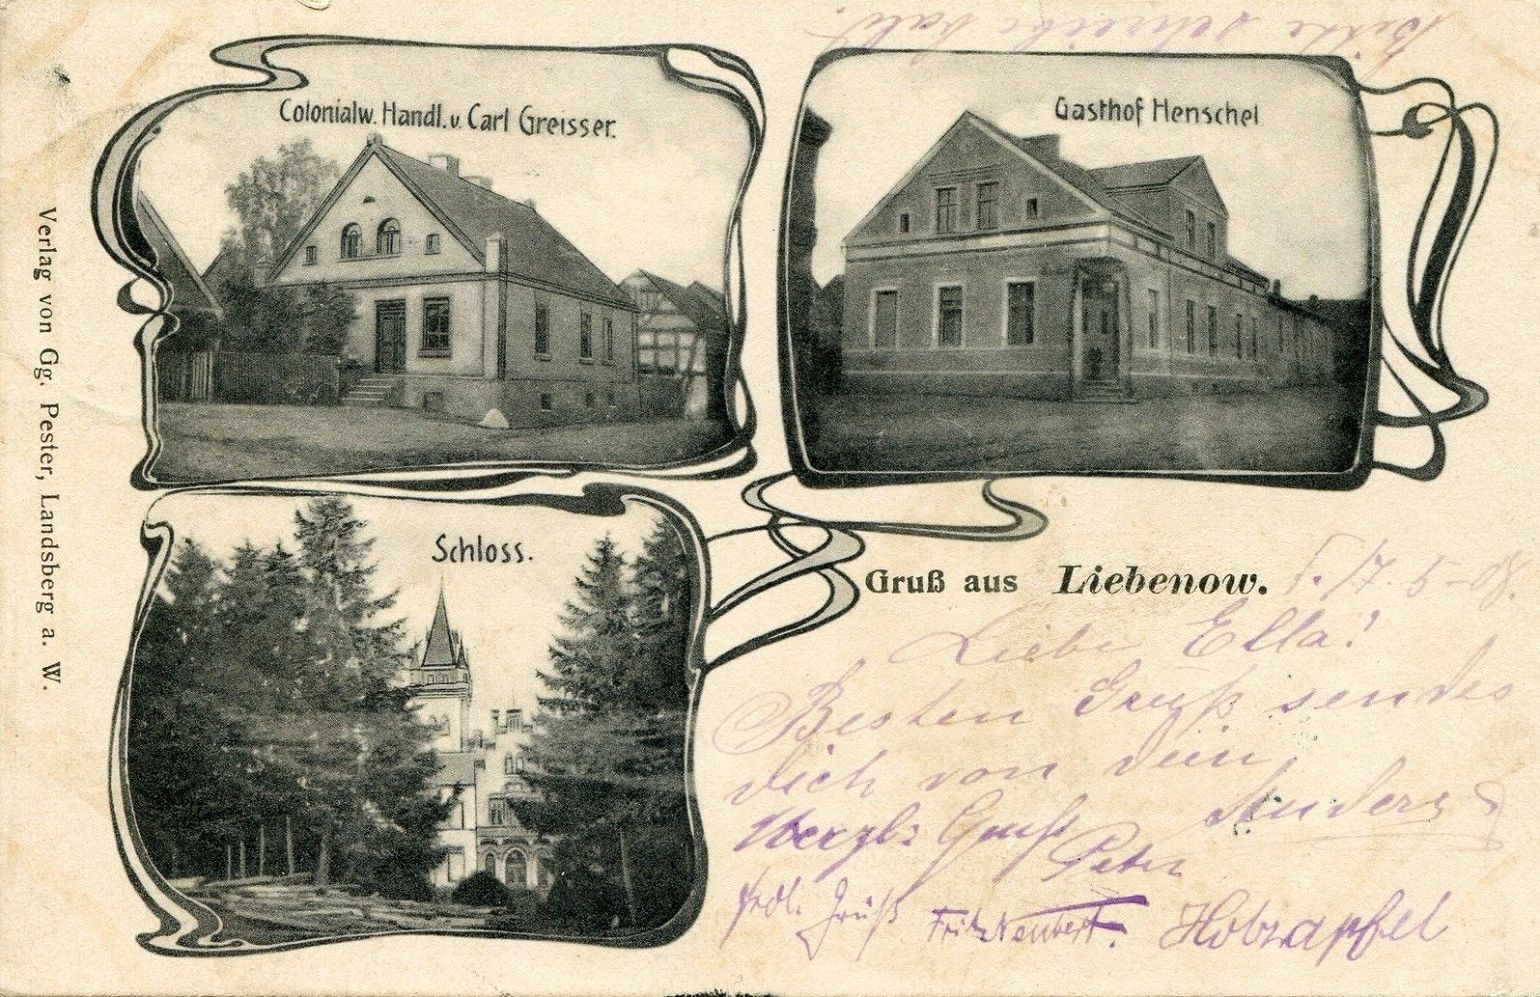 Bitte schreibe bald.
Colonialw. Handl. v. Carl Greisser.
Gasthof Henschel
Verlag von Gg. Pester, Landsberg a. W.
Schloss.
Gruß aus Liebenow.
17. 5. 08.
Liebe Ella!
Besten Gruß sendes
dich von dein
Herzl. Gruß
Peter
frdl. Gruß Fritz Neubert. Holzapfel